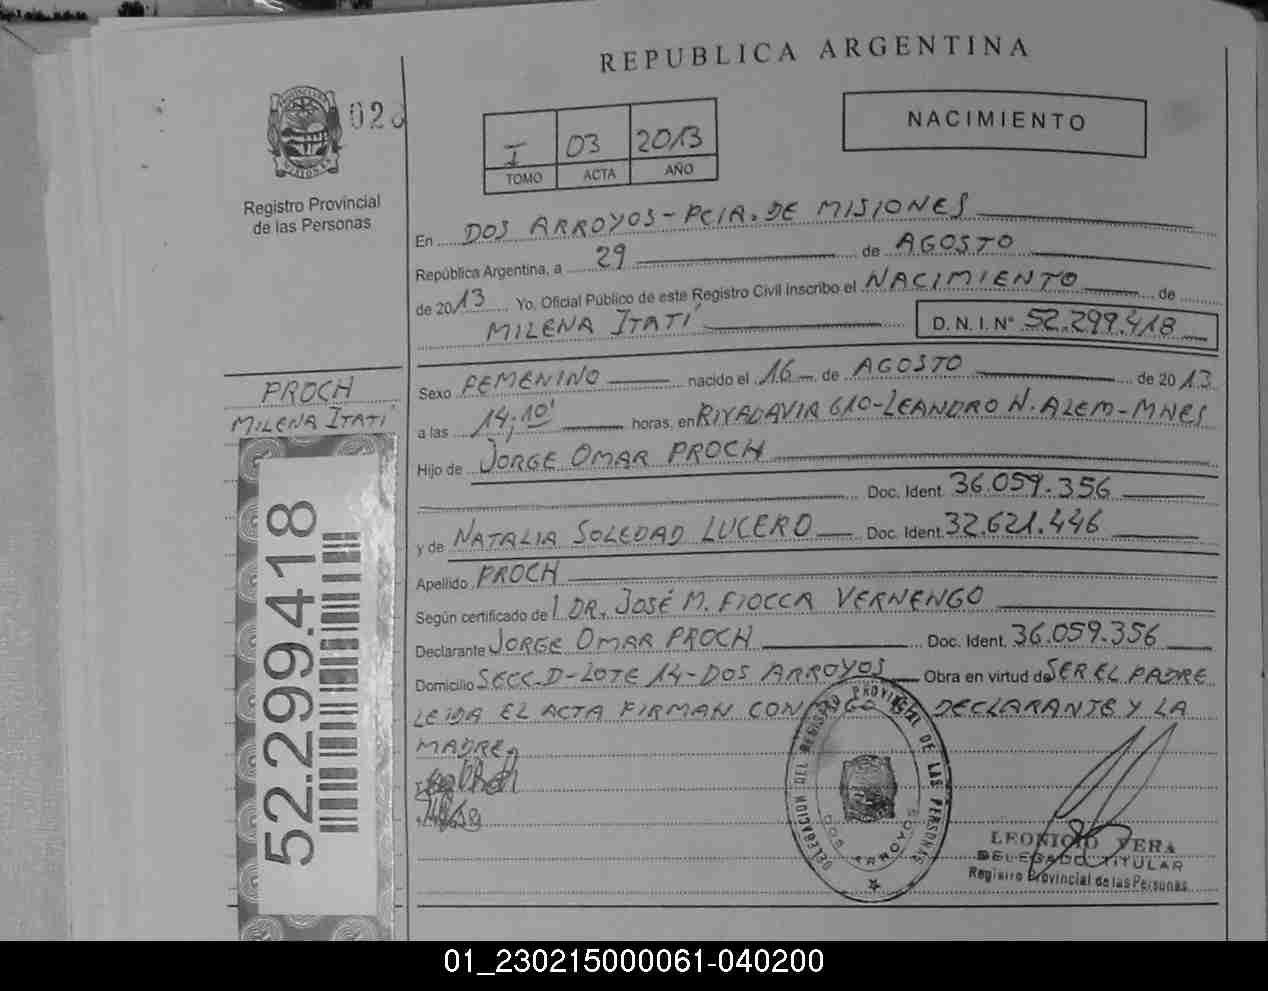 REPUBLICA ARGENTINA
028
Registro Provincial
de las Personas
I 03 2013
TOMO ACTA AÑO
NACIMIENTO
En DOS ARROYOS - PCIA. DE MISIONES
República Argentina, a 29 de AGOSTO
de 2013 Yo, Oficial Público de este Registro Civil Inscribo el NACIMIENTO de
MILENA ITATÍ D. N. I. Nº 52.299.418
PROCH
MILENA ITATÍ
Sexo FEMENINO nacido el 16 de AGOSTO de 2013
a las 14:10' horas, en RIVADAVIA 610-LEANDRO N. ALEM-MNES
Hijo de JORGE OMAR PROCH
Doc. Ident. 36.059.356
y de NATALIA SOLEDAD LUCERO Doc. Ident. 32.621.446
Apellido PROCH
Según certificado del DR. JOSÉ M. FIOCCA VERNENGO
Declarante JORGE OMAR PROCH Doc. Ident. 36.059.356
Domicilio SECC. D-LOTE 14-DOS ARROYOS Obra en virtud de SER EL PADRE
LEIDA EL ACTA FIRMAN CONMIGO DECLARANTE Y LA
MADRE
52.299.418
DELEGACION DEL REGISTRO PROVINCIAL DE LAS PERSONAS
DOS ARROYOS
LEONICIO VERA
DELEGADO TITULAR
Registro Provincial de las Personas
01_230215000061-040200